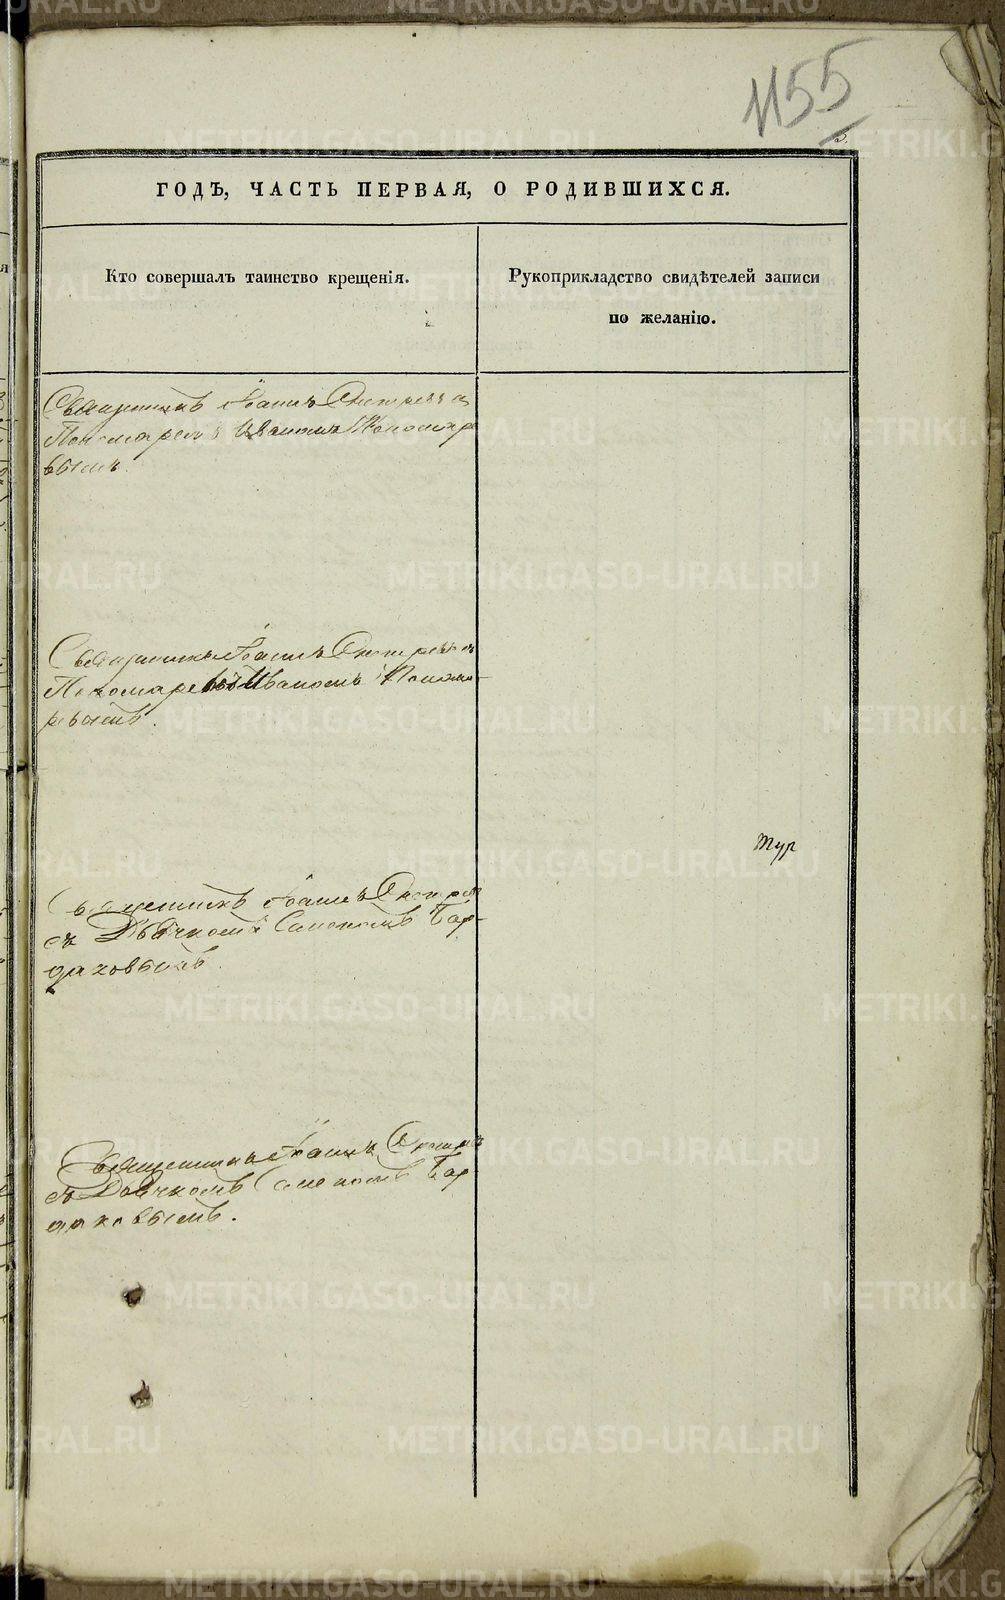 1155
ГОДЪ, ЧАСТЬ ПЕРВАЯ, О РОДИВШИХСЯ.
Кто совершалъ таинство крещенія.
Рукоприкладство свидѣтелей записи
по желанію.
Священникъ Іоаннъ съ
Пономаремъ Иваномъ Пономаре
вымъ.
Священникъ Іоаннъ съ
Пономаремъ Иваномъ Понома-
ревымъ.
Священникъ Іоаннъ
съ Дьячкомъ Симеономъ Бар-
даковымъ.
Священникъ Іоаннъ
съ Дьячкомъ Симеономъ Бар
даковымъ.
тур
METRIKI.GASO-URAL.RU